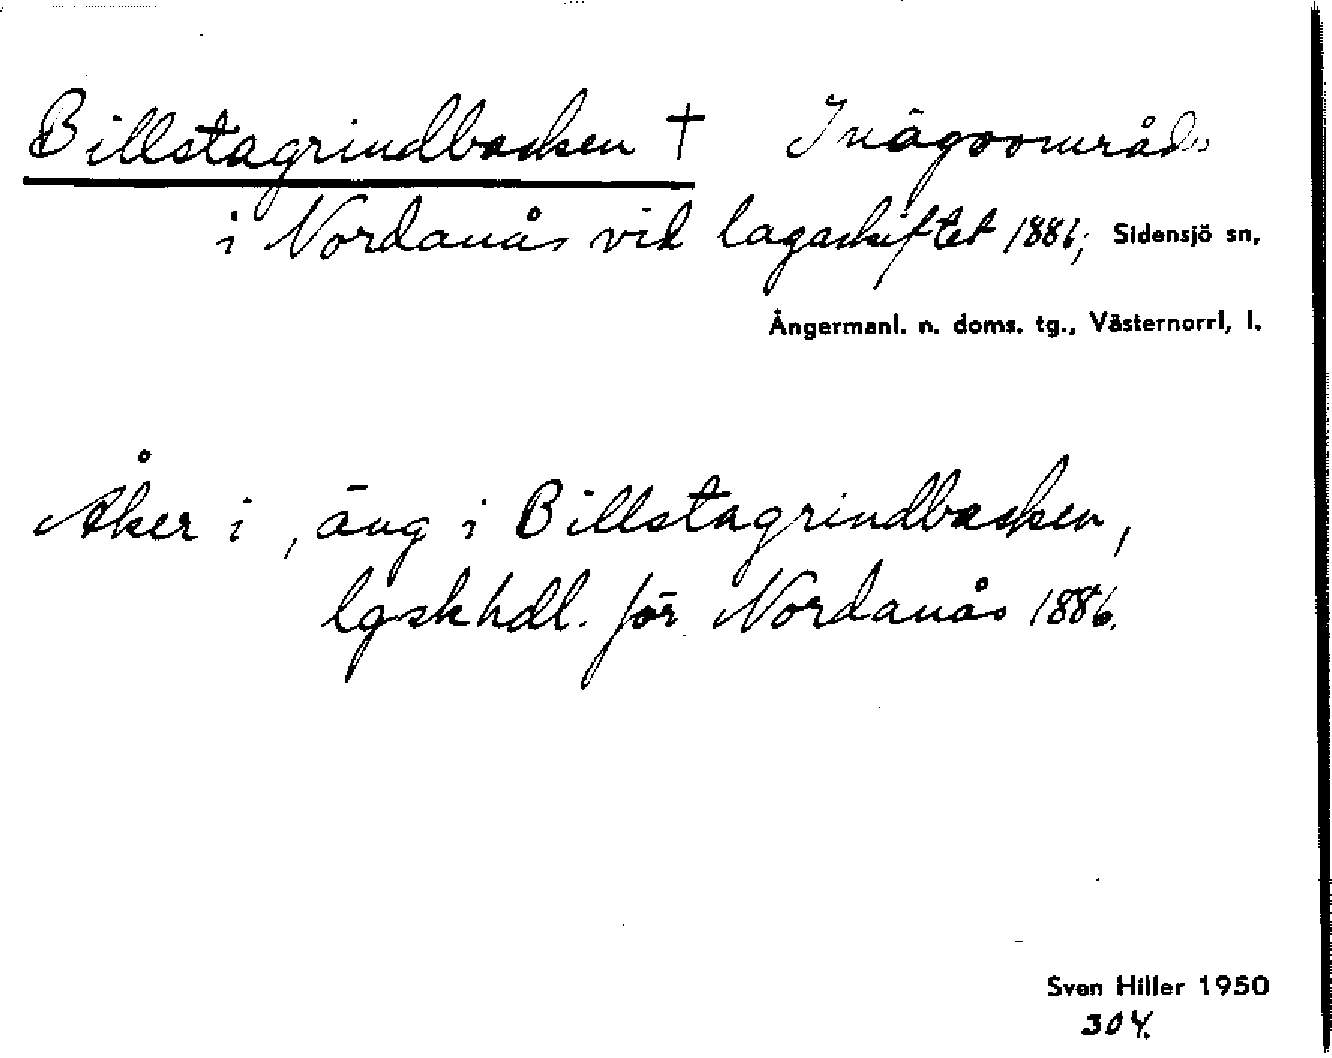 Billstagrindbacken † Inägoområde
i Nordanås vid lagaskiftet 1886; Sidensjö sn,
Ångermanl. n. doms. tg., Västernorrl, l.
Åker i, äng i Billstagrindbacken,
lgskhdl. för Nordanås 1886.
Sven Hiller 1950
304.